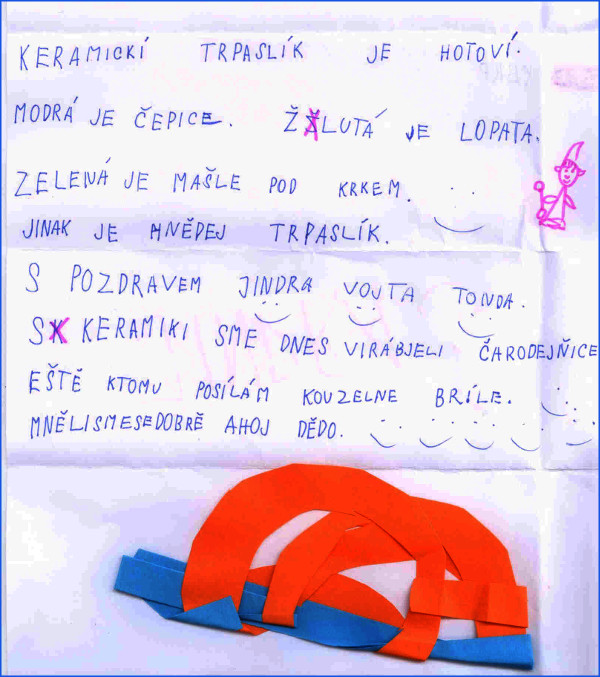 KERAMICKÍ TRPASLÍK JE HOTOVÍ.
MODRÁ JE ČEPICE. ŽLUTÁ JE LOPATA.
ZELENÁ JE MAŠLE POD KRKEM.
JINAK JE MNĚDEJ TRPASLÍK.
S POZDRAVEM JINDRA VOJTA TONDA.
S KERAMIKI SME DNES VIRÁBJELI ČARODEJŇICE
EŠTĚ KTOMU POSÍLÁM KOUZELNE BRÍLE.
MNĚLISMESEDOBRĚ AHOJ DĚDO.